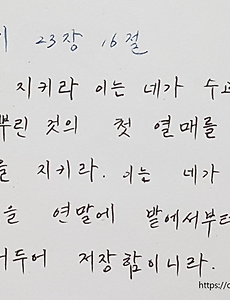 23장 16절
지키라 이는 네가 수고
뿌린 것의 첫 열매를
를 지키라. 이는 네가
을 연말에 밭에서부터
거두어 저장함이니라.
https://c